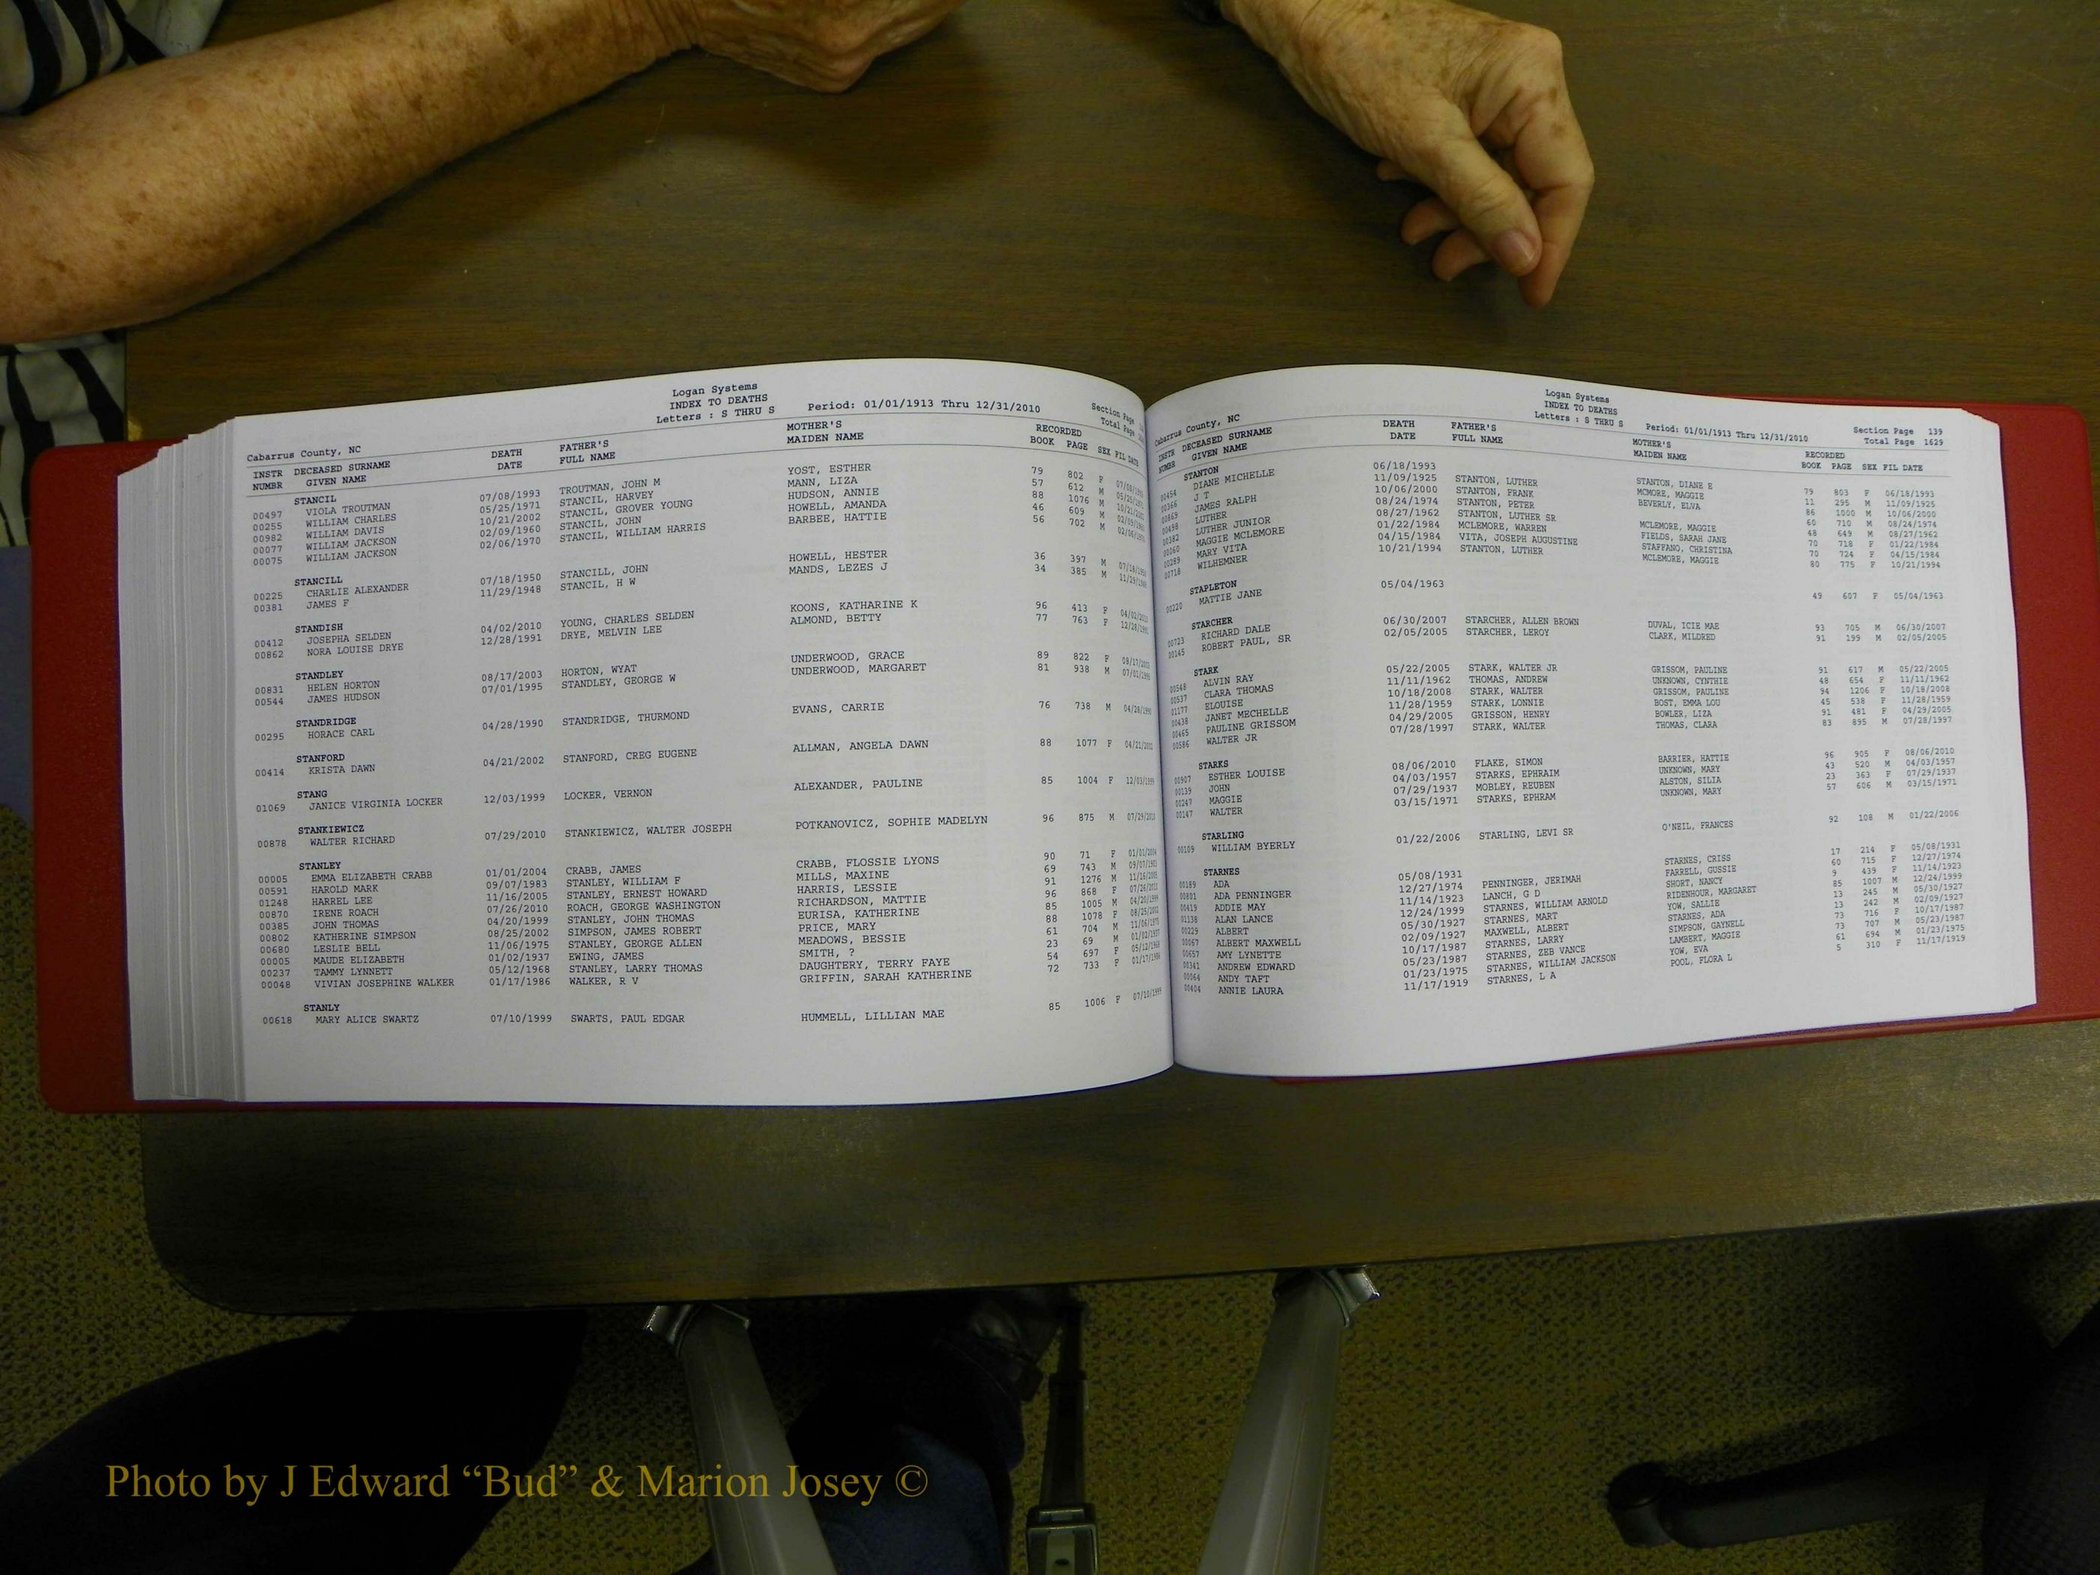 Logan Systems
INDEX TO DEATHS
Letters : S THRU S Period: 01/01/1913 Thru 12/31/2010 Section Page
Cabarrus County, NC Total Page
INSTR DECEASED SURNAME DEATH FATHER'S MOTHER'S RECORDED
NUMBR GIVEN NAME DATE FULL NAME MAIDEN NAME BOOK PAGE SEX FIL DATE
STANCIL
00497 VIOLA TROUTMAN 07/08/1993 TROUTMAN, JOHN M YOST, ESTHER 79 802 F
00255 WILLIAM CHARLES 05/25/1971 STANCIL, HARVEY MANN, LIZA 57 612 M
00982 WILLIAM DAVIS 10/21/2002 STANCIL, GROVER YOUNG HUDSON, ANNIE 88 1076 M
00077 WILLIAM JACKSON 02/09/1960 STANCIL, JOHN HOWELL, AMANDA 46 609 M
00075 WILLIAM JACKSON 02/06/1970 STANCIL, WILLIAM HARRIS BARBEE, HATTIE 56 702 M
STANCILL
00225 CHARLIE ALEXANDER 07/18/1950 STANCILL, JOHN HOWELL, HESTER 36 397 M
00381 JAMES F 11/29/1948 STANCIL, H W MANDS, LEZES J 34 385 M
STANDISH
00412 JOSEPHA SELDEN 04/02/2010 YOUNG, CHARLES SELDEN KOONS, KATHARINE K 96 413 F
00862 NORA LOUISE DRYE 12/28/1991 DRYE, MELVIN LEE ALMOND, BETTY 77 763 F
STANDLEY
00831 HELEN HORTON 08/17/2003 HORTON, WYAT UNDERWOOD, GRACE 89 822 F
00544 JAMES HUDSON 07/01/1995 STANDLEY, GEORGE W UNDERWOOD, MARGARET 81 938 M
STANDRIDGE
00295 HORACE CARL 04/28/1990 STANDRIDGE, THURMOND EVANS, CARRIE 76 738 M 04/28/1990
STANFORD
00414 KRISTA DAWN 04/21/2002 STANFORD, CREG EUGENE ALLMAN, ANGELA DAWN 88 1077 F 04/21/2002
STANG
01069 JANICE VIRGINIA LOCKER 12/03/1999 LOCKER, VERNON ALEXANDER, PAULINE 85 1004 F 12/03/1999
STANKIEWICZ
00878 WALTER RICHARD 07/29/2010 STANKIEWICZ, WALTER JOSEPH POTKANOVICZ, SOPHIE MADELYN 96 875 M 07/29/2010
STANLEY
00005 EMMA ELIZABETH CRABB 01/01/2004 CRABB, JAMES CRABB, FLOSSIE LYONS 90 71 F 01/01/2004
00591 HAROLD MARK 09/07/1983 STANLEY, WILLIAM F MILLS, MAXINE 69 743 M 09/07/1983
01248 HARREL LEE 11/16/2005 STANLEY, ERNEST HOWARD HARRIS, LESSIE 91 1276 M 11/16/2005
00870 IRENE ROACH 07/26/2010 ROACH, GEORGE WASHINGTON RICHARDSON, MATTIE 96 868 F 07/26/2010
00385 JOHN THOMAS 04/20/1999 STANLEY, JOHN THOMAS EURISA, KATHERINE 85 1005 M 04/20/1999
00802 KATHERINE SIMPSON 08/25/2002 SIMPSON, JAMES ROBERT PRICE, MARY 88 1078 F 08/25/2002
00680 LESLIE BELL 11/06/1975 STANLEY, GEORGE ALLEN MEADOWS, BESSIE 61 704 M 11/06/1975
00005 MAUDE ELIZABETH 01/02/1937 EWING, JAMES SMITH, ? 23 69 M 01/02/1937
00237 TAMMY LYNNETT 05/12/1968 STANLEY, LARRY THOMAS DAUGHTERY, TERRY FAYE 54 697 F 05/12/1968
00048 VIVIAN JOSEPHINE WALKER 01/17/1986 WALKER, R V GRIFFIN, SARAH KATHERINE 72 733 F 01/17/1986
STANLY
00618 MARY ALICE SWARTZ 07/10/1999 SWARTS, PAUL EDGAR HUMMELL, LILLIAN MAE 85 1006 F 07/10/1999
Logan Systems
INDEX TO DEATHS
Letters : S THRU S Period: 01/01/1913 Thru 12/31/2010 Section Page 139
Cabarrus County, NC Total Page 1629
INSTR DECEASED SURNAME DEATH FATHER'S MOTHER'S RECORDED
NUMBR GIVEN NAME DATE FULL NAME MAIDEN NAME BOOK PAGE SEX FIL DATE
STANTON
00454 DIANE MICHELLE 06/18/1993 STANTON, DIANE E 79 803 F 06/18/1993
00368 J T 11/09/1925 STANTON, LUTHER MCMORE, MAGGIE 11 295 M 11/09/1925
00869 JAMES RALPH 10/06/2000 STANTON, FRANK BEVERLY, ELVA 86 1000 M 10/06/2000
00498 LUTHER 08/24/1974 STANTON, PETER 60 710 M 08/24/1974
00382 LUTHER JUNIOR 08/27/1962 STANTON, LUTHER SR MCLEMORE, MAGGIE 48 649 M 08/27/1962
00060 MAGGIE MCLEMORE 01/22/1984 MCLEMORE, WARREN FIELDS, SARAH JANE 70 718 F 01/22/1984
00289 MARY VITA 04/15/1984 VITA, JOSEPH AUGUSTINE STAFFANO, CHRISTINA 70 724 F 04/15/1984
00718 WILHEMNER 10/21/1994 STANTON, LUTHER MCLEMORE, MAGGIE 80 775 F 10/21/1994
STAPLETON
00220 MATTIE JANE 05/04/1963 49 607 F 05/04/1963
STARCHER
00723 RICHARD DALE 06/30/2007 STARCHER, ALLEN BROWN DUVAL, ICIE MAE 93 705 M 06/30/2007
00145 ROBERT PAUL, SR 02/05/2005 STARCHER, LEROY CLARK, MILDRED 91 199 M 02/05/2005
STARK
00548 ALVIN RAY 05/22/2005 STARK, WALTER JR GRISSOM, PAULINE 91 617 M 05/22/2005
00537 CLARA THOMAS 11/11/1962 THOMAS, ANDREW UNKNOWN, CYNTHIE 48 654 F 11/11/1962
01177 ELOUISE 10/18/2008 STARK, WALTER GRISSOM, PAULINE 94 1206 F 10/18/2008
00438 JANET MECHELLE 11/28/1959 STARK, LONNIE BOST, EMMA LOU 45 538 F 11/28/1959
00465 PAULINE GRISSOM 04/29/2005 GRISSON, HENRY BOWLER, LIZA 91 481 F 04/29/2005
00586 WALTER JR 07/28/1997 STARK, WALTER THOMAS, CLARA 83 895 M 07/28/1997
STARKS
00907 ESTHER LOUISE 08/06/2010 FLAKE, SIMON BARRIER, HATTIE 96 905 F 08/06/2010
00139 JOHN 04/03/1957 STARKS, EPHRAIM UNKNOWN, MARY 43 520 M 04/03/1957
00247 MAGGIE 07/29/1937 MOBLEY, REUBEN ALSTON, SILIA 23 363 F 07/29/1937
00147 WALTER 03/15/1971 STARKS, EPHRAM UNKNOWN, MARY 57 606 M 03/15/1971
STARLING
00109 WILLIAM BYERLY 01/22/2006 STARLING, LEVI SR O'NEIL, FRANCES 92 108 M 01/22/2006
STARNES
00189 ADA 05/08/1931 STARNES, CRISS 17 214 F 05/08/1931
00801 ADA PENNINGER 12/27/1974 PENNINGER, JERIMAH FARRELL, GUSSIE 60 715 F 12/27/1974
00419 ADDIE MAY 11/14/1923 LANCH, G D SHORT, NANCY 9 439 F 11/14/1923
01138 ALAN LANCE 12/24/1999 STARNES, WILLIAM ARNOLD RIDENHOUR, MARGARET 85 1007 M 12/24/1999
00229 ALBERT 05/30/1927 STARNES, MART YOW, SALLIE 13 245 M 05/30/1927
00067 ALBERT MAXWELL 02/09/1927 MAXWELL, ALBERT STARNES, ADA 13 242 M 02/09/1927
00657 AMY LYNETTE 10/17/1987 STARNES, LARRY SIMPSON, GAYNELL 73 716 F 10/17/1987
00341 ANDREW EDWARD 05/23/1987 STARNES, ZEB VANCE LAMBERT, MAGGIE 73 707 M 05/23/1987
00064 ANDY TAFT 01/23/1975 STARNES, WILLIAM JACKSON YOW, EVA 61 694 M 01/23/1975
00404 ANNIE LAURA 11/17/1919 STARNES, L A POOL, FLORA L 5 310 F 11/17/1919
Photo by J Edward “Bud” & Marion Josey ©